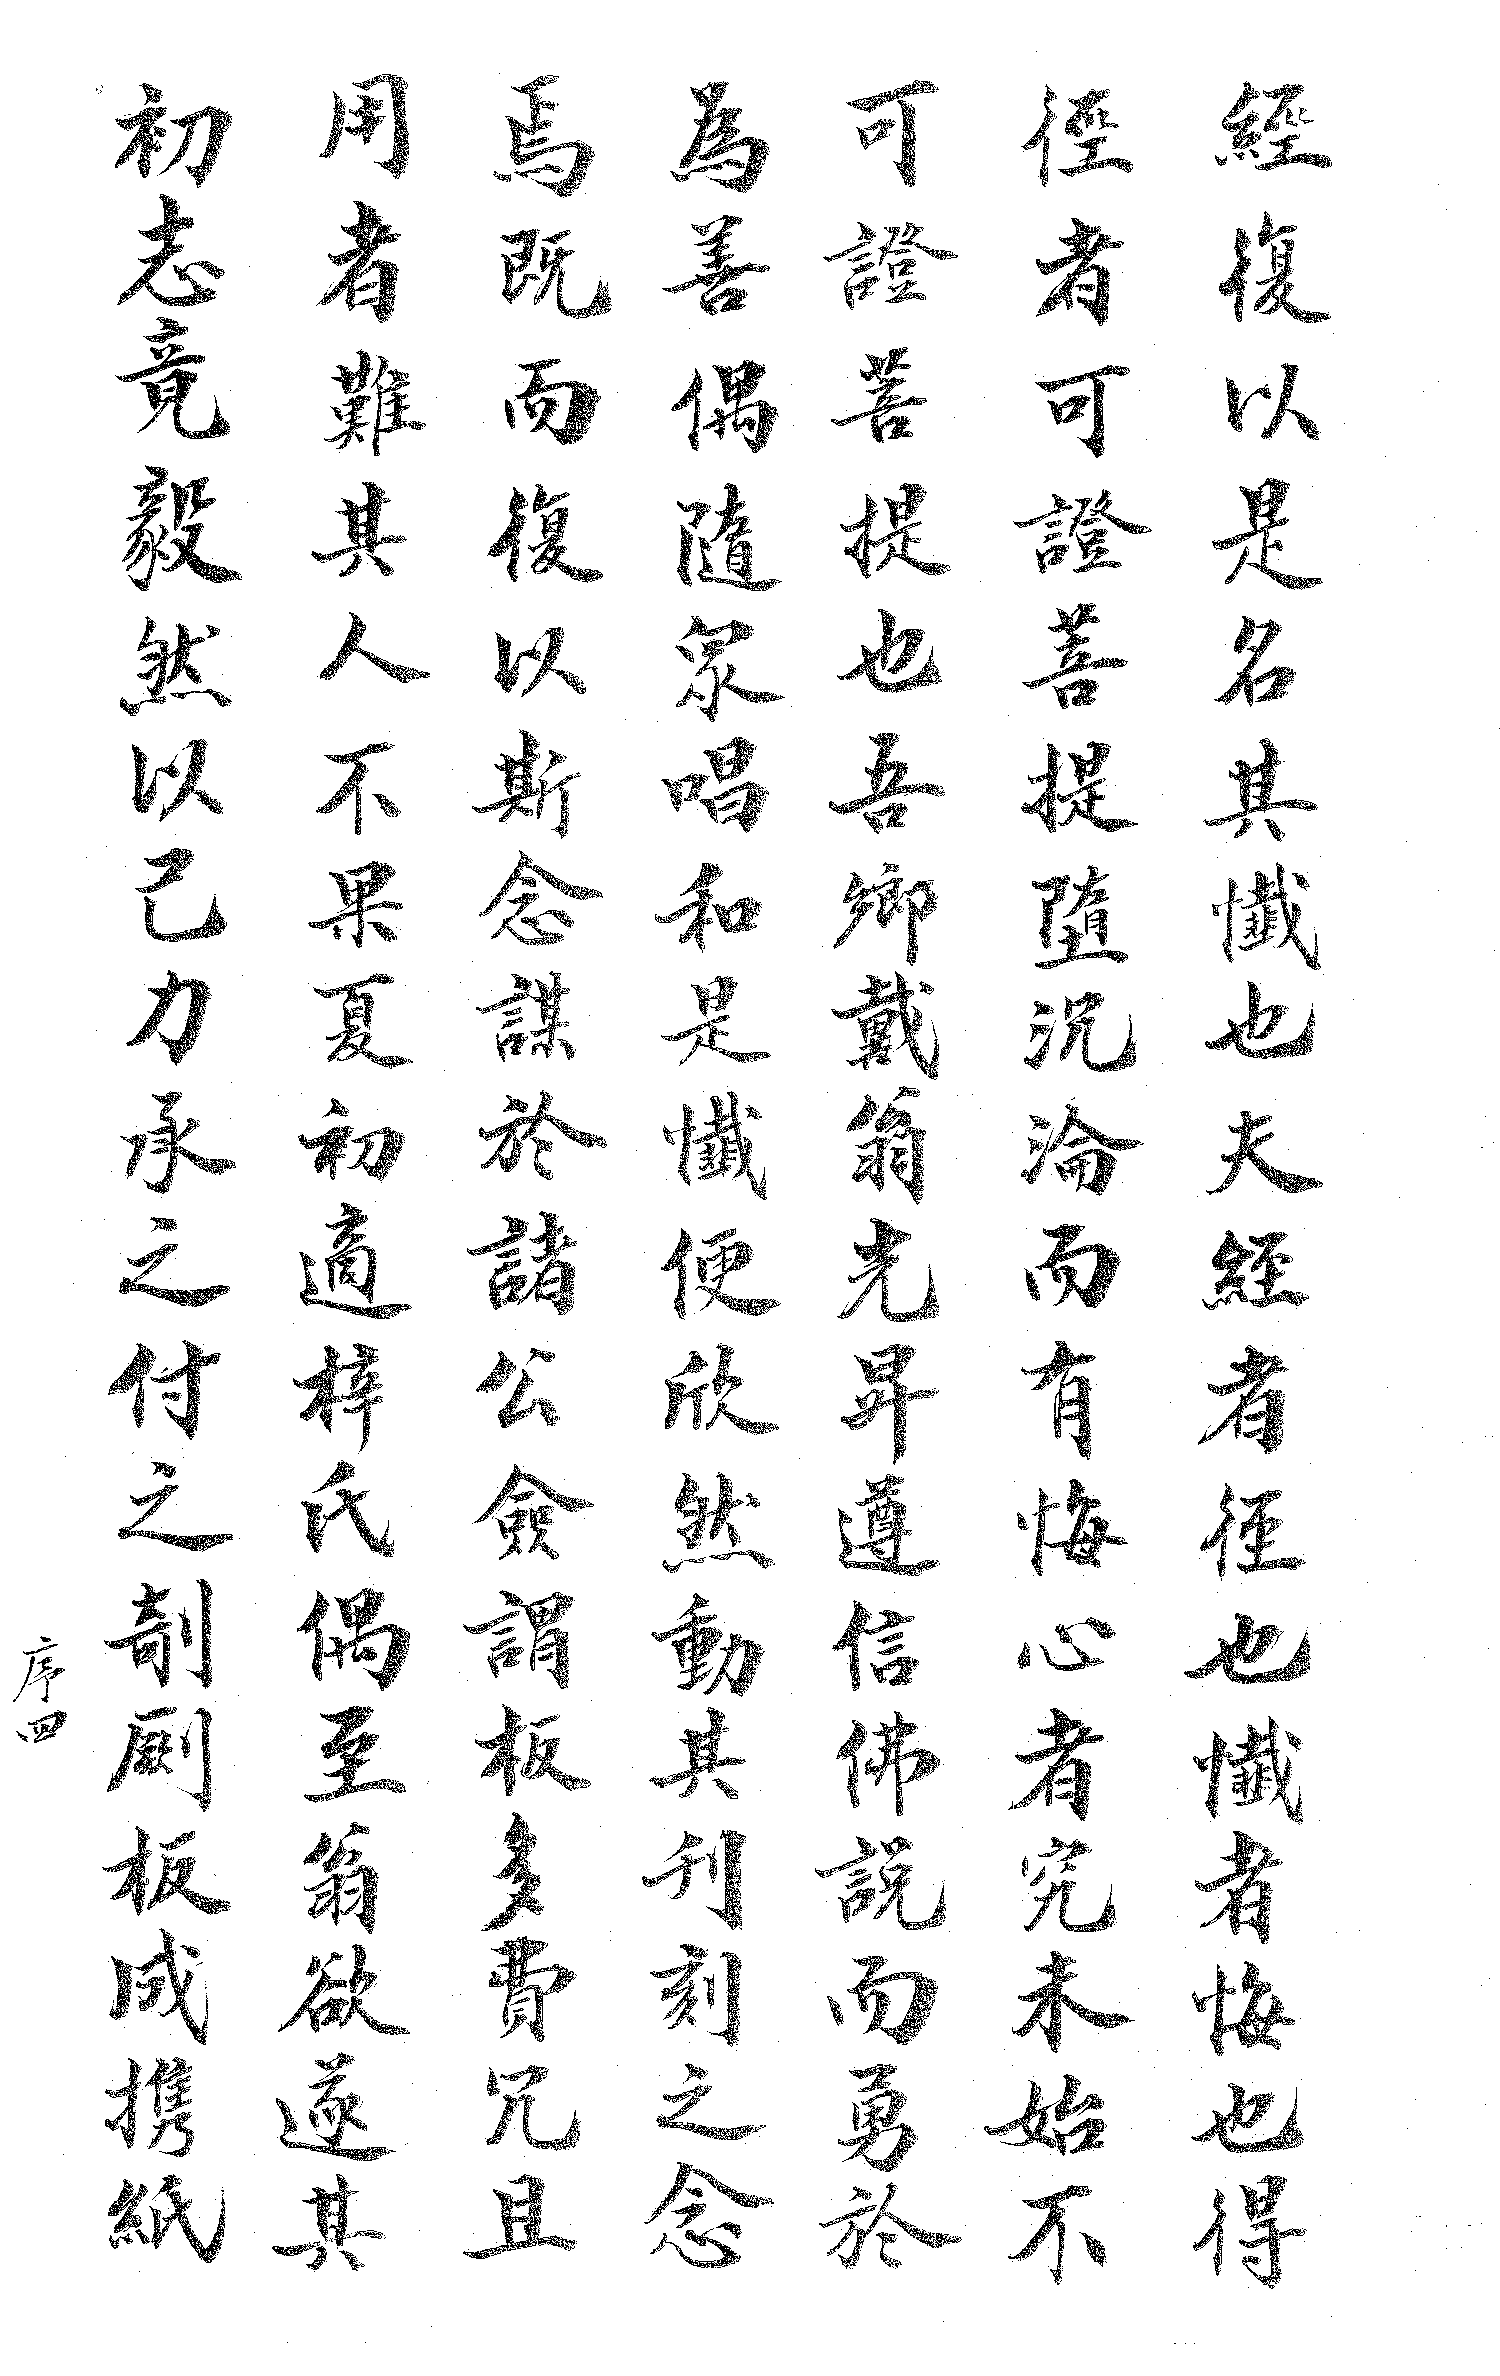 經復以是名其懺也夫經者徑也懺者悔也得
徑者可證菩提墮沉淪而有悔心者究未始不
可證菩提也吾鄉戴翁光昇遵信佛說而勇於
為善偶隨眾唱和是懺便欣然動其刊刻之念
焉既而復以斯念謀於諸公僉謂板多費冗且
用者難其人不果夏初適梓氏偶至翁欲遂其
初志竟毅然以己力承之付之剞劂板成携紙
序四